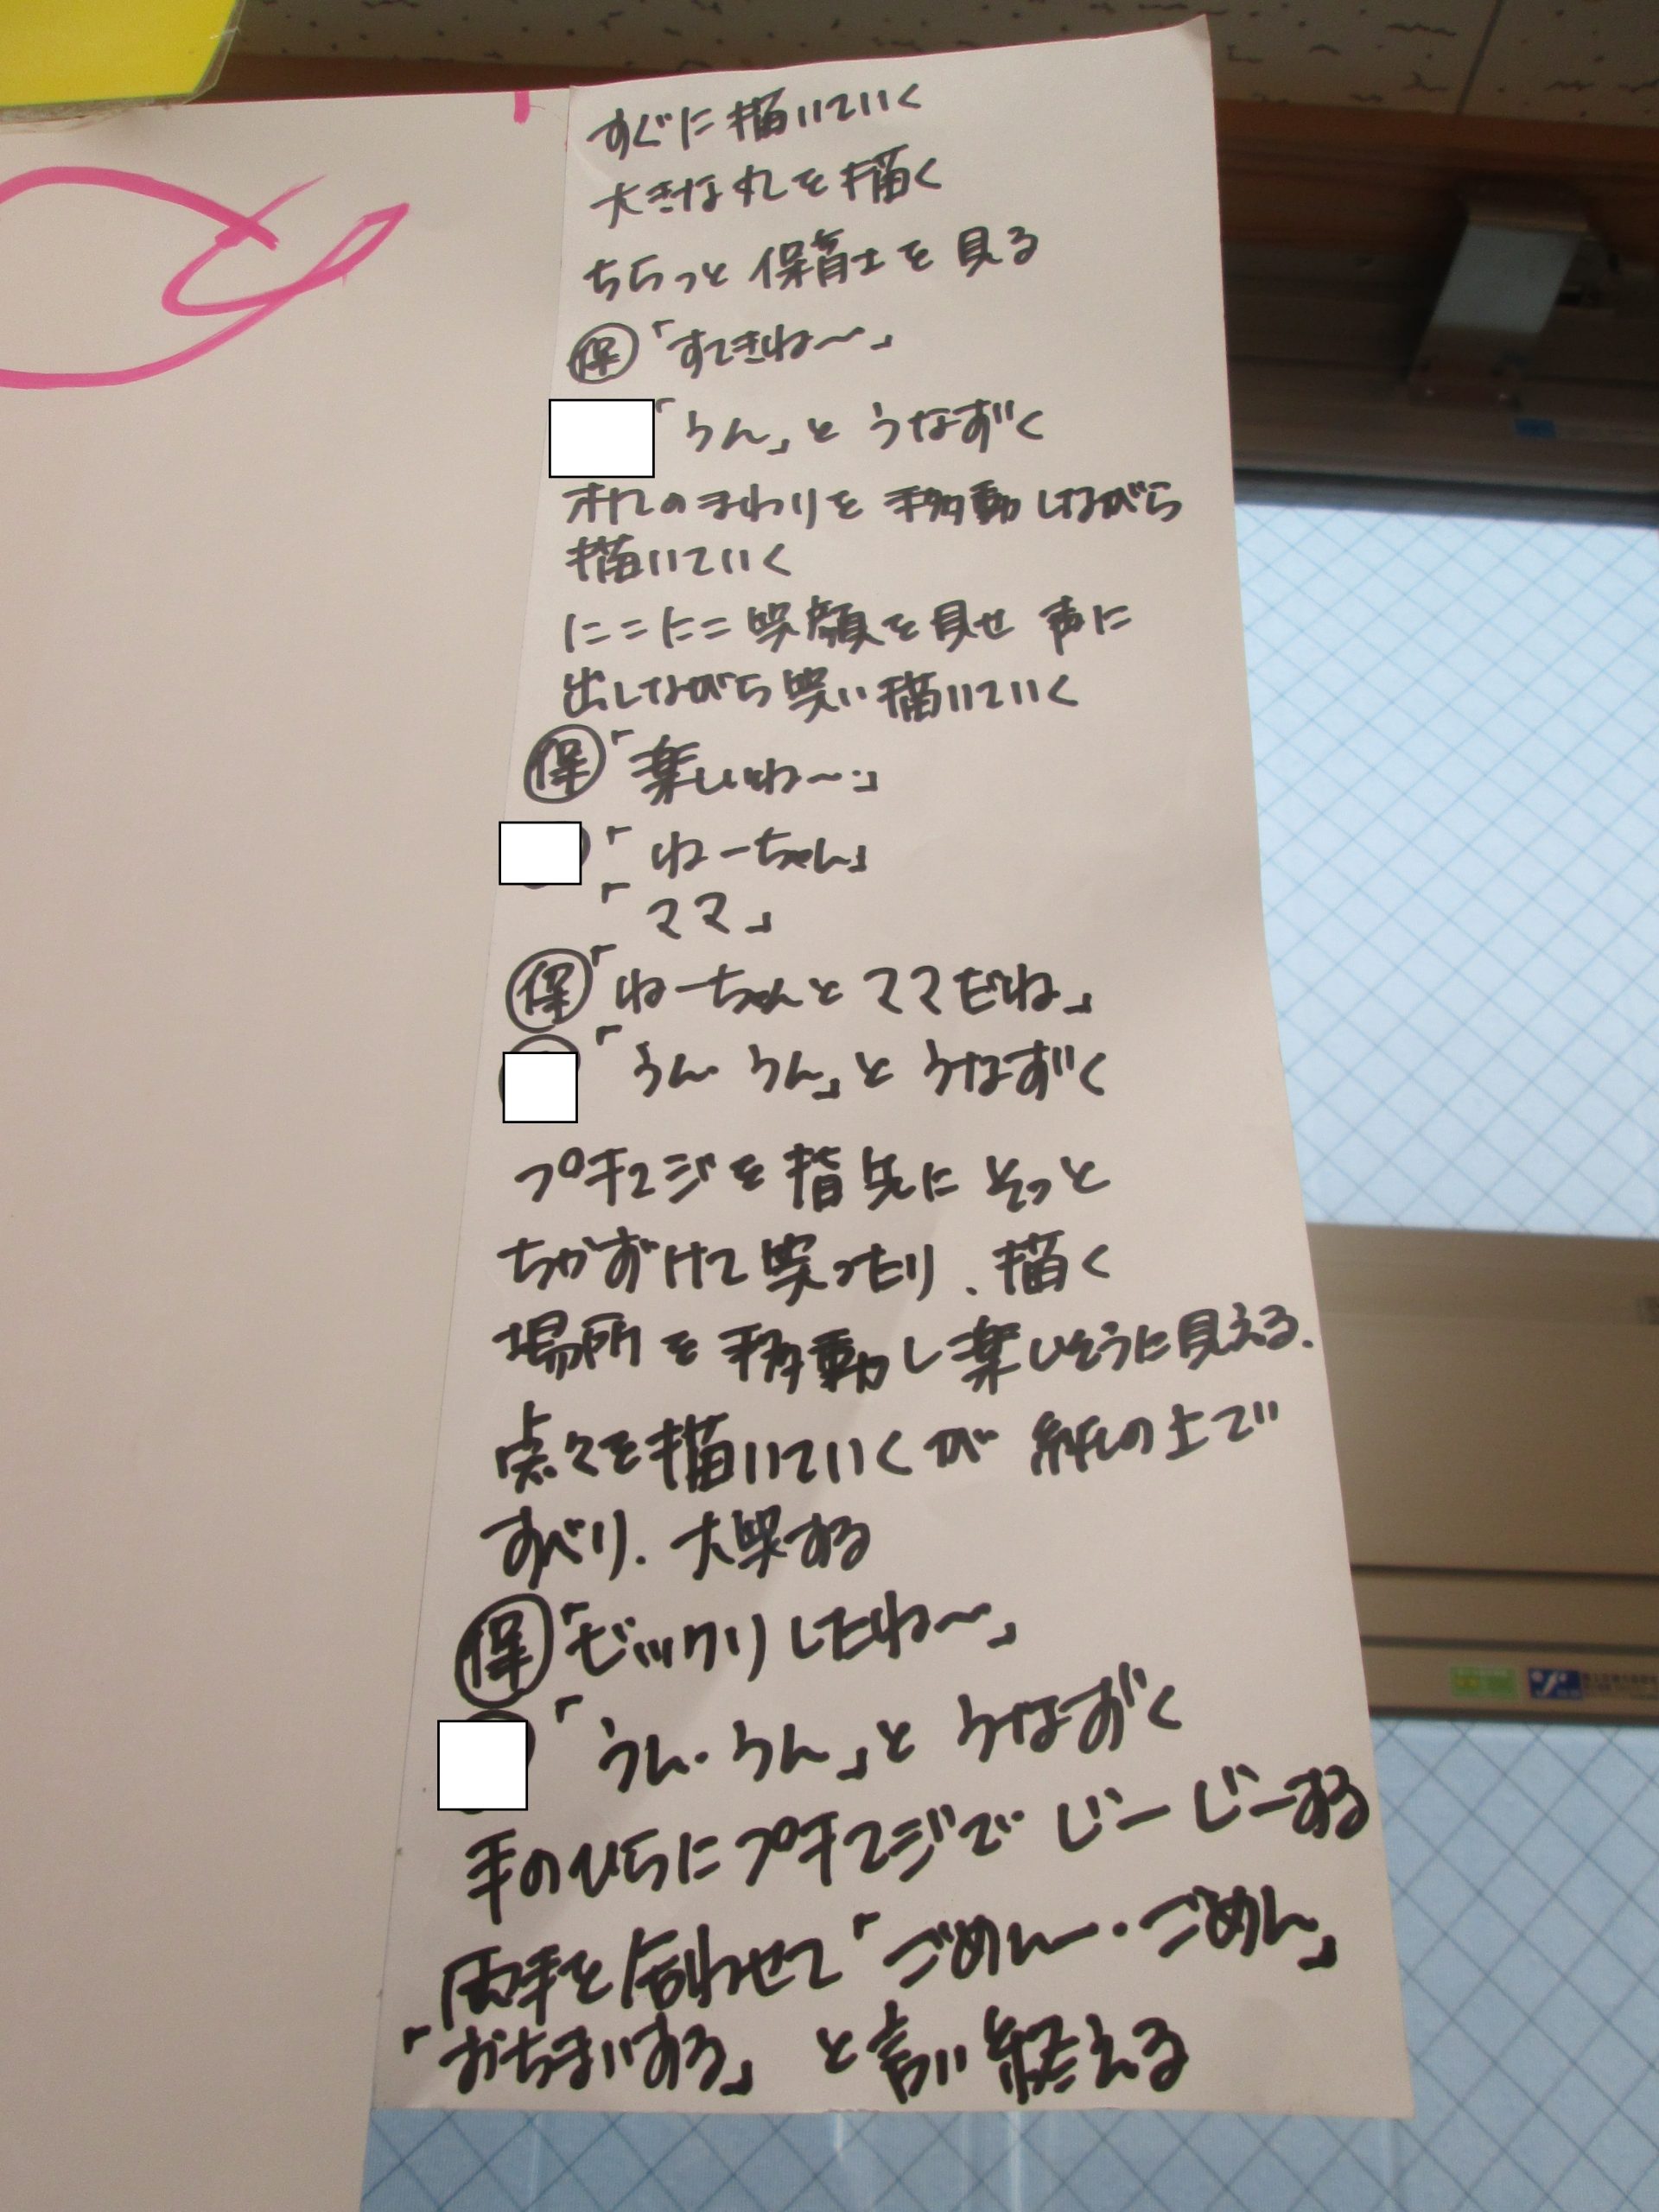 すぐに描いていく
大きな丸を描く
ちらっと保育士を見る
保「すてきね〜」
「うん」とうなずく
机のまわりを移動しながら
描いていく
にこにこ笑顔を見せ 声に
出しながら笑い描いていく
保「楽しいね〜」
「ねーちゃん」
「ママ」
保「ねーちゃんとママだね」
「うん・うん」とうなずく
プチマジを指先にそっと
ちかずけて笑ったり、描く
場所を移動し楽しそうに見える.
点々を描いていくが紙の上で
すべり.大笑する
保「ビックリしたね〜」
「うん・うん」とうなずく
手のひらにプチマジで じーじーする
両手を合わせて「ごめんー・ごめん」
「おちまいする」 と言い終える